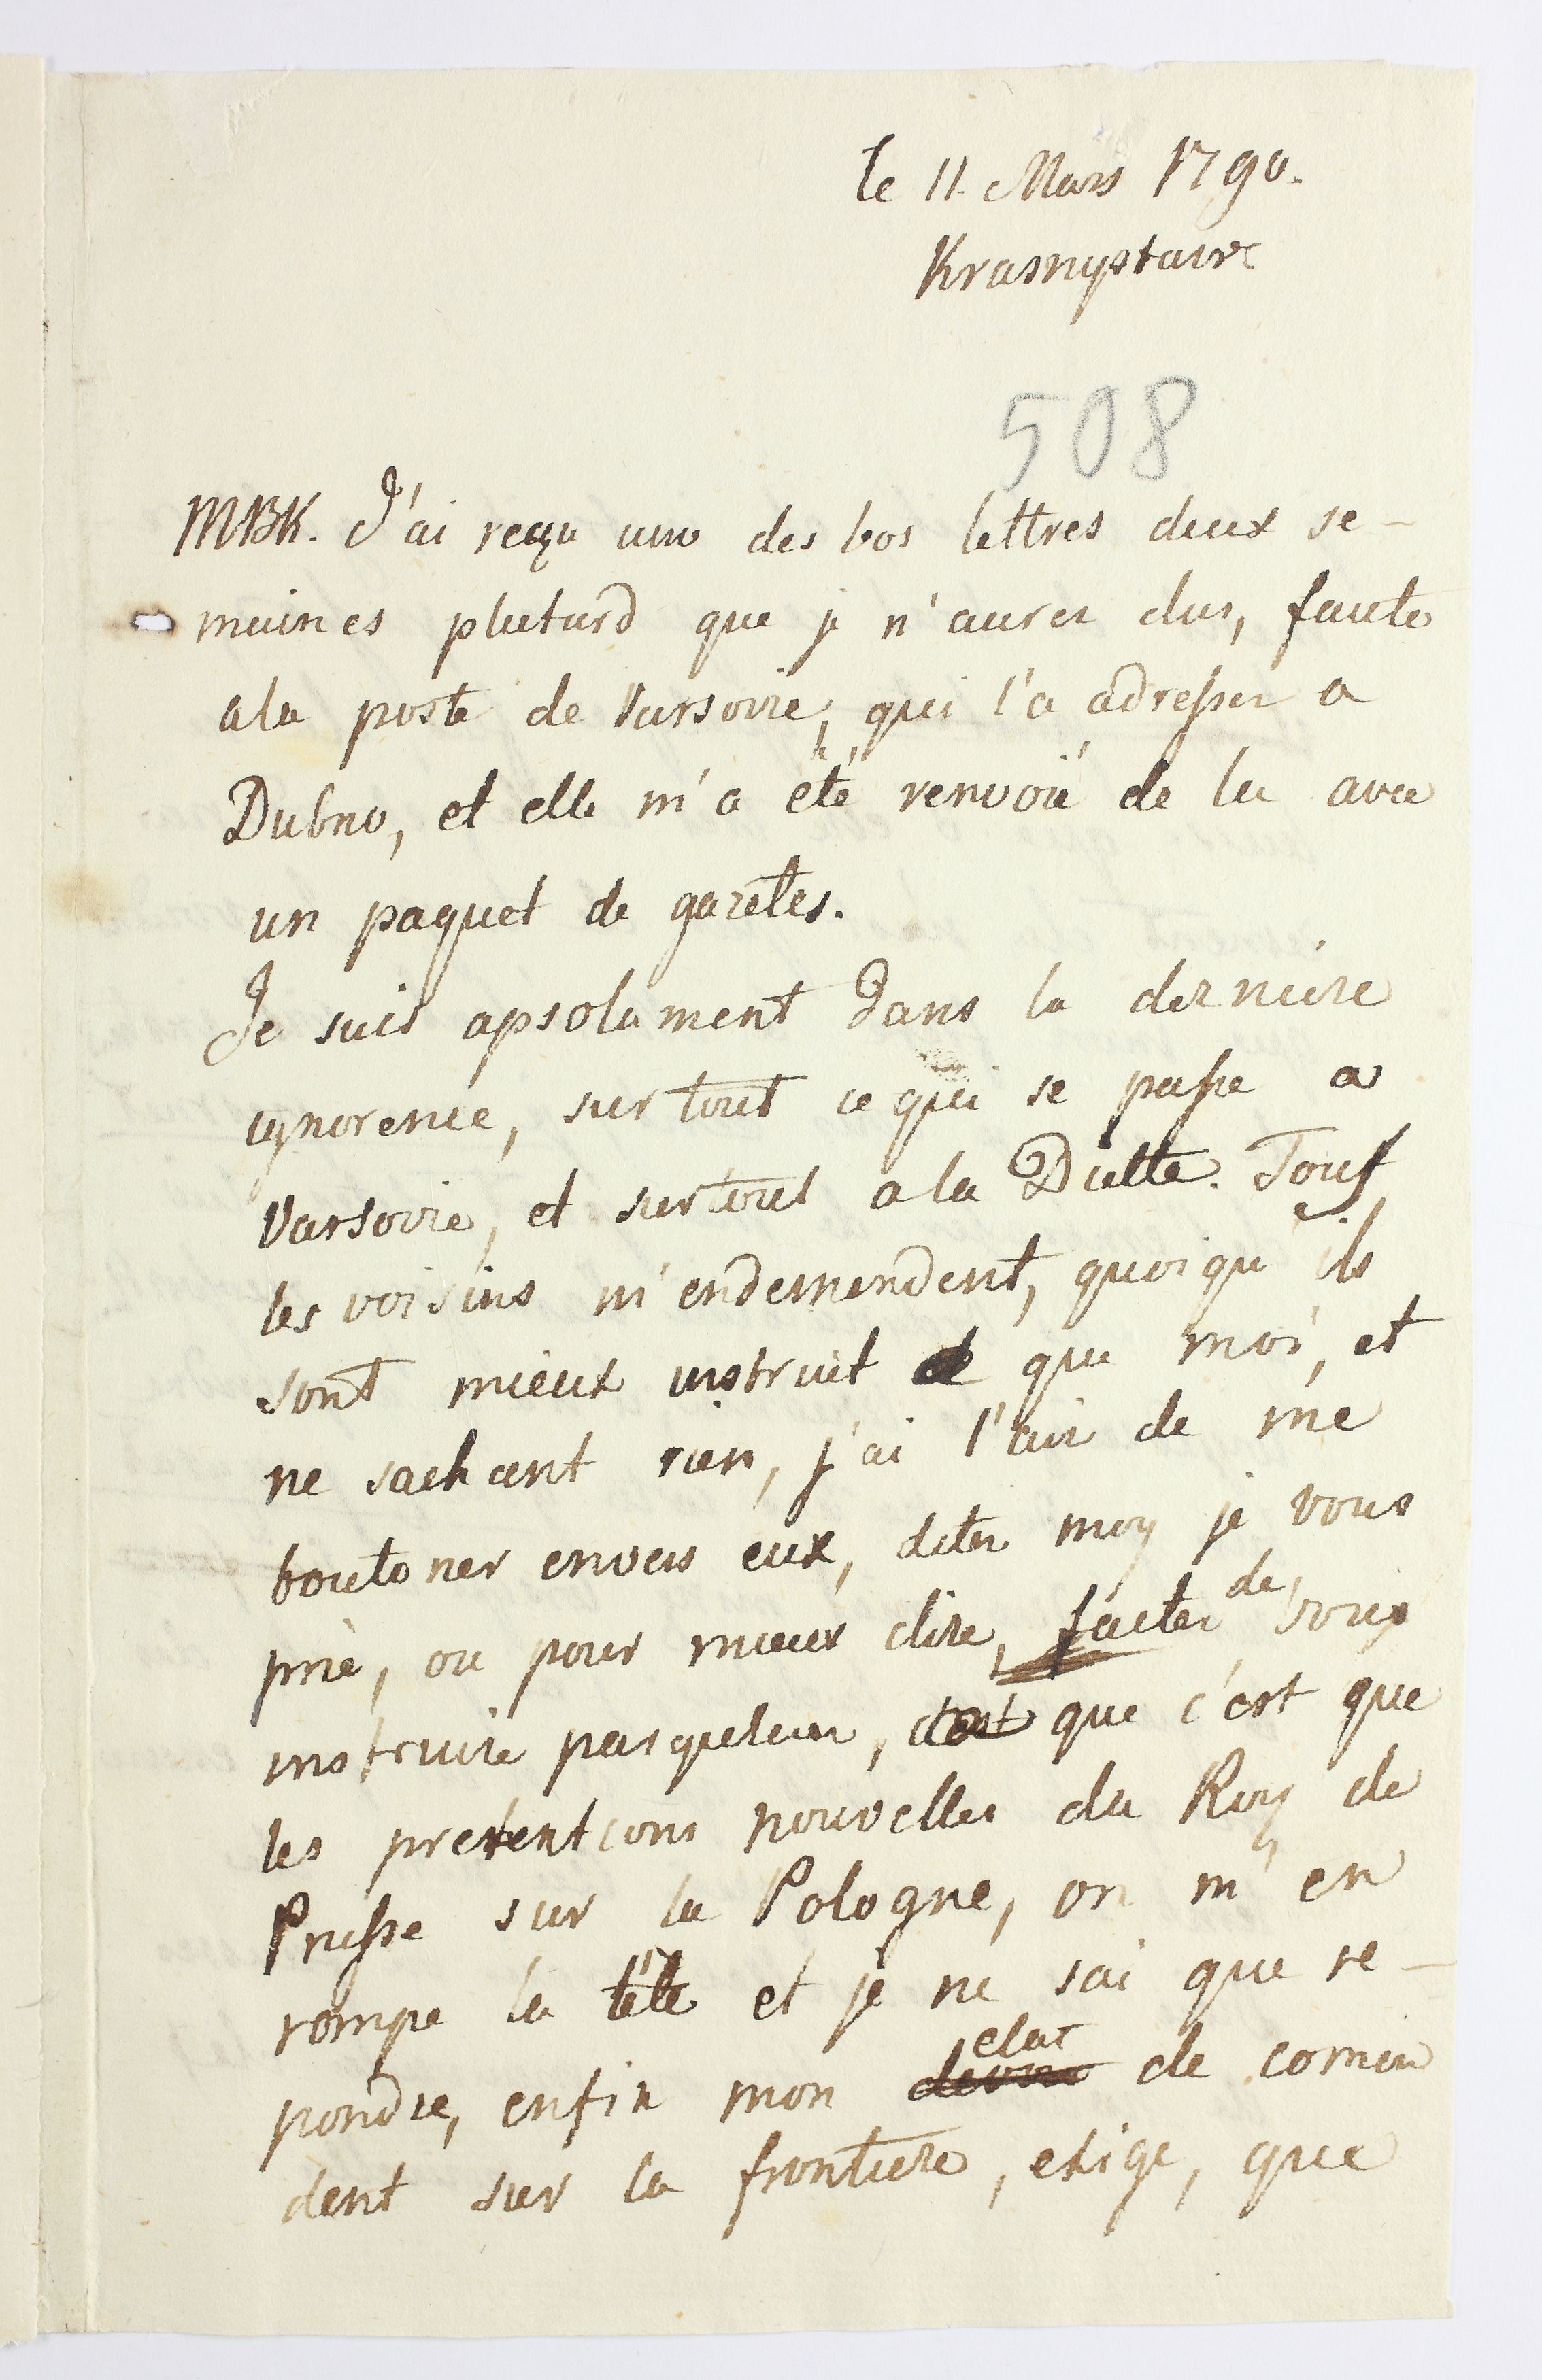 le 11. Mars 1790.
Krasnystaw
508
MBK. J'ai reçu une des vos lettres deux se-
maines plutard que je n'aurer dus, faute
a la poste de Varsovie, qui l'a adresser a
Dubno, et elle m'a été renvoié de la avec
un paquet de gazetes.
Je suis apsolument dans la derniere
ignorence, sur tout ce qui se passe a
Varsovie, et surtout a la Diette. Tous
les voisins m'endemendent, quoiqu'ils
sont mieux instruit que moi, et
ne sachant rien, j'ai l'air de me
boutoner envers eux, dites moy je vous
prie, ou pour mieux dire, faites de vous
instruire parquelun, que c'est que
les pretentions nouvelles du Roy de
Prusse sur la Pologne, on m'en
rompe la tête et je ne sai que re-
pondre, enfin mon etat de comen
dent sur la frontiere, exige, que